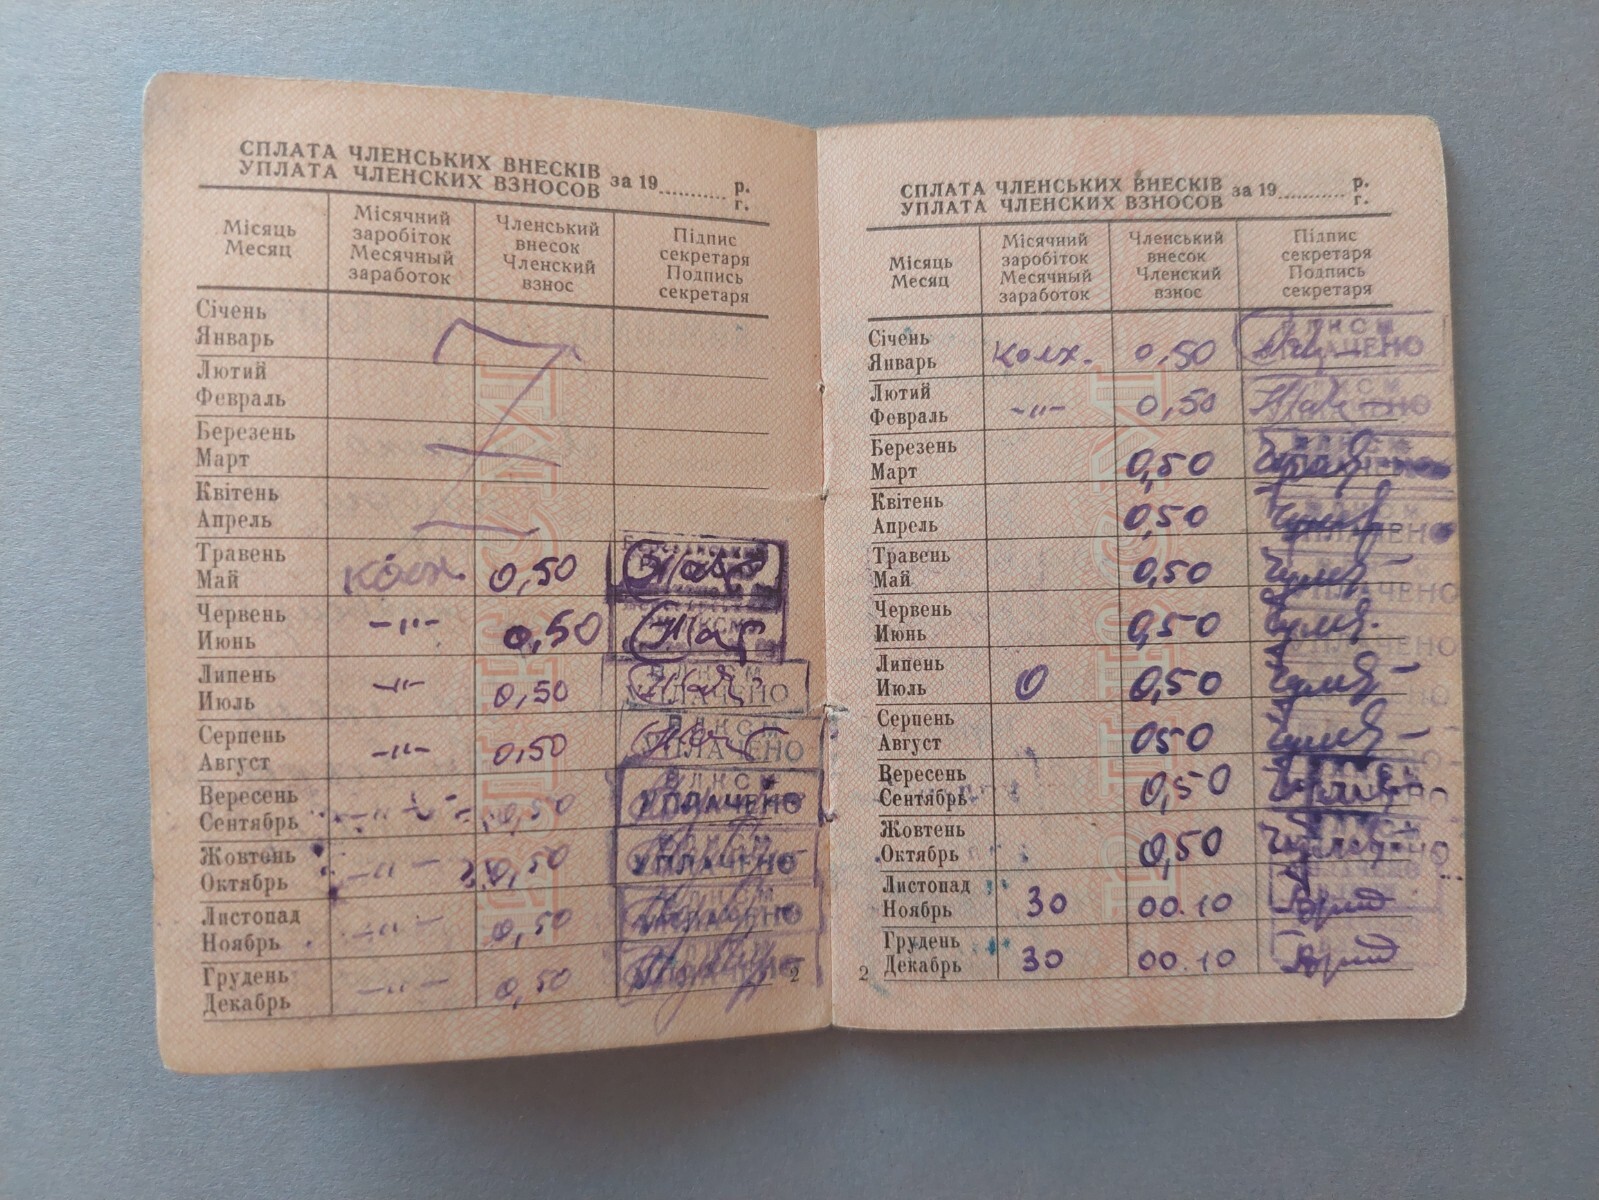 СПЛАТА ЧЛЕНСЬКИХ ВНЕСКІВ за 19 р.
УПЛАТА ЧЛЕНСКИХ ВЗНОСОВ г.
Місяць
Месяц
Місячний
заробіток
Месячный
заработок
Членський
внесок
Членский
взнос
Підпис
секретаря
Подпись
секретаря
Січень
Январь
Лютий
Февраль
Березень
Март
Квітень
Апрель
Травень
Май колх. 0,50
Червень
Июнь -"- 0,50
Липень
Июль -"- 0,50 УПЛАЧЕНО
Серпень ВЛКСМ
Август -"- 0,50 УПЛАЧЕНО
Вересень ВЛКСМ
Сентябрь -"- 0,50 УПЛАЧЕНО
Жовтень
Октябрь -"- 0,50 УПЛАЧЕНО
Листопад
Ноябрь -"- 0,50 УПЛАЧЕНО
Грудень
Декабрь -"- 0,50
2
СПЛАТА ЧЛЕНСЬКИХ ВНЕСКІВ за 19 р.
УПЛАТА ЧЛЕНСКИХ ВЗНОСОВ г.
Місяць
Месяц
Місячний
заробіток
Месячный
заработок
Членський
внесок
Членский
взнос
Підпис
секретаря
Подпись
секретаря
Січень ВЛКСМ
Январь колх. 0,50 УПЛАЧЕНО
Лютий
Февраль -"- 0,50
Березень
Март 0,50
Квітень
Апрель 0,50 УПЛАЧЕНО
Травень
Май 0,50 УПЛАЧЕНО
Червень
Июнь 0,50 УПЛАЧЕНО
Липень
Июль 0 0,50
Серпень
Август 050
Вересень
Сентябрь 0,50
Жовтень
Октябрь 0,50
Листопад
Ноябрь 30 00.10
Грудень
Декабрь 30 00.10
2